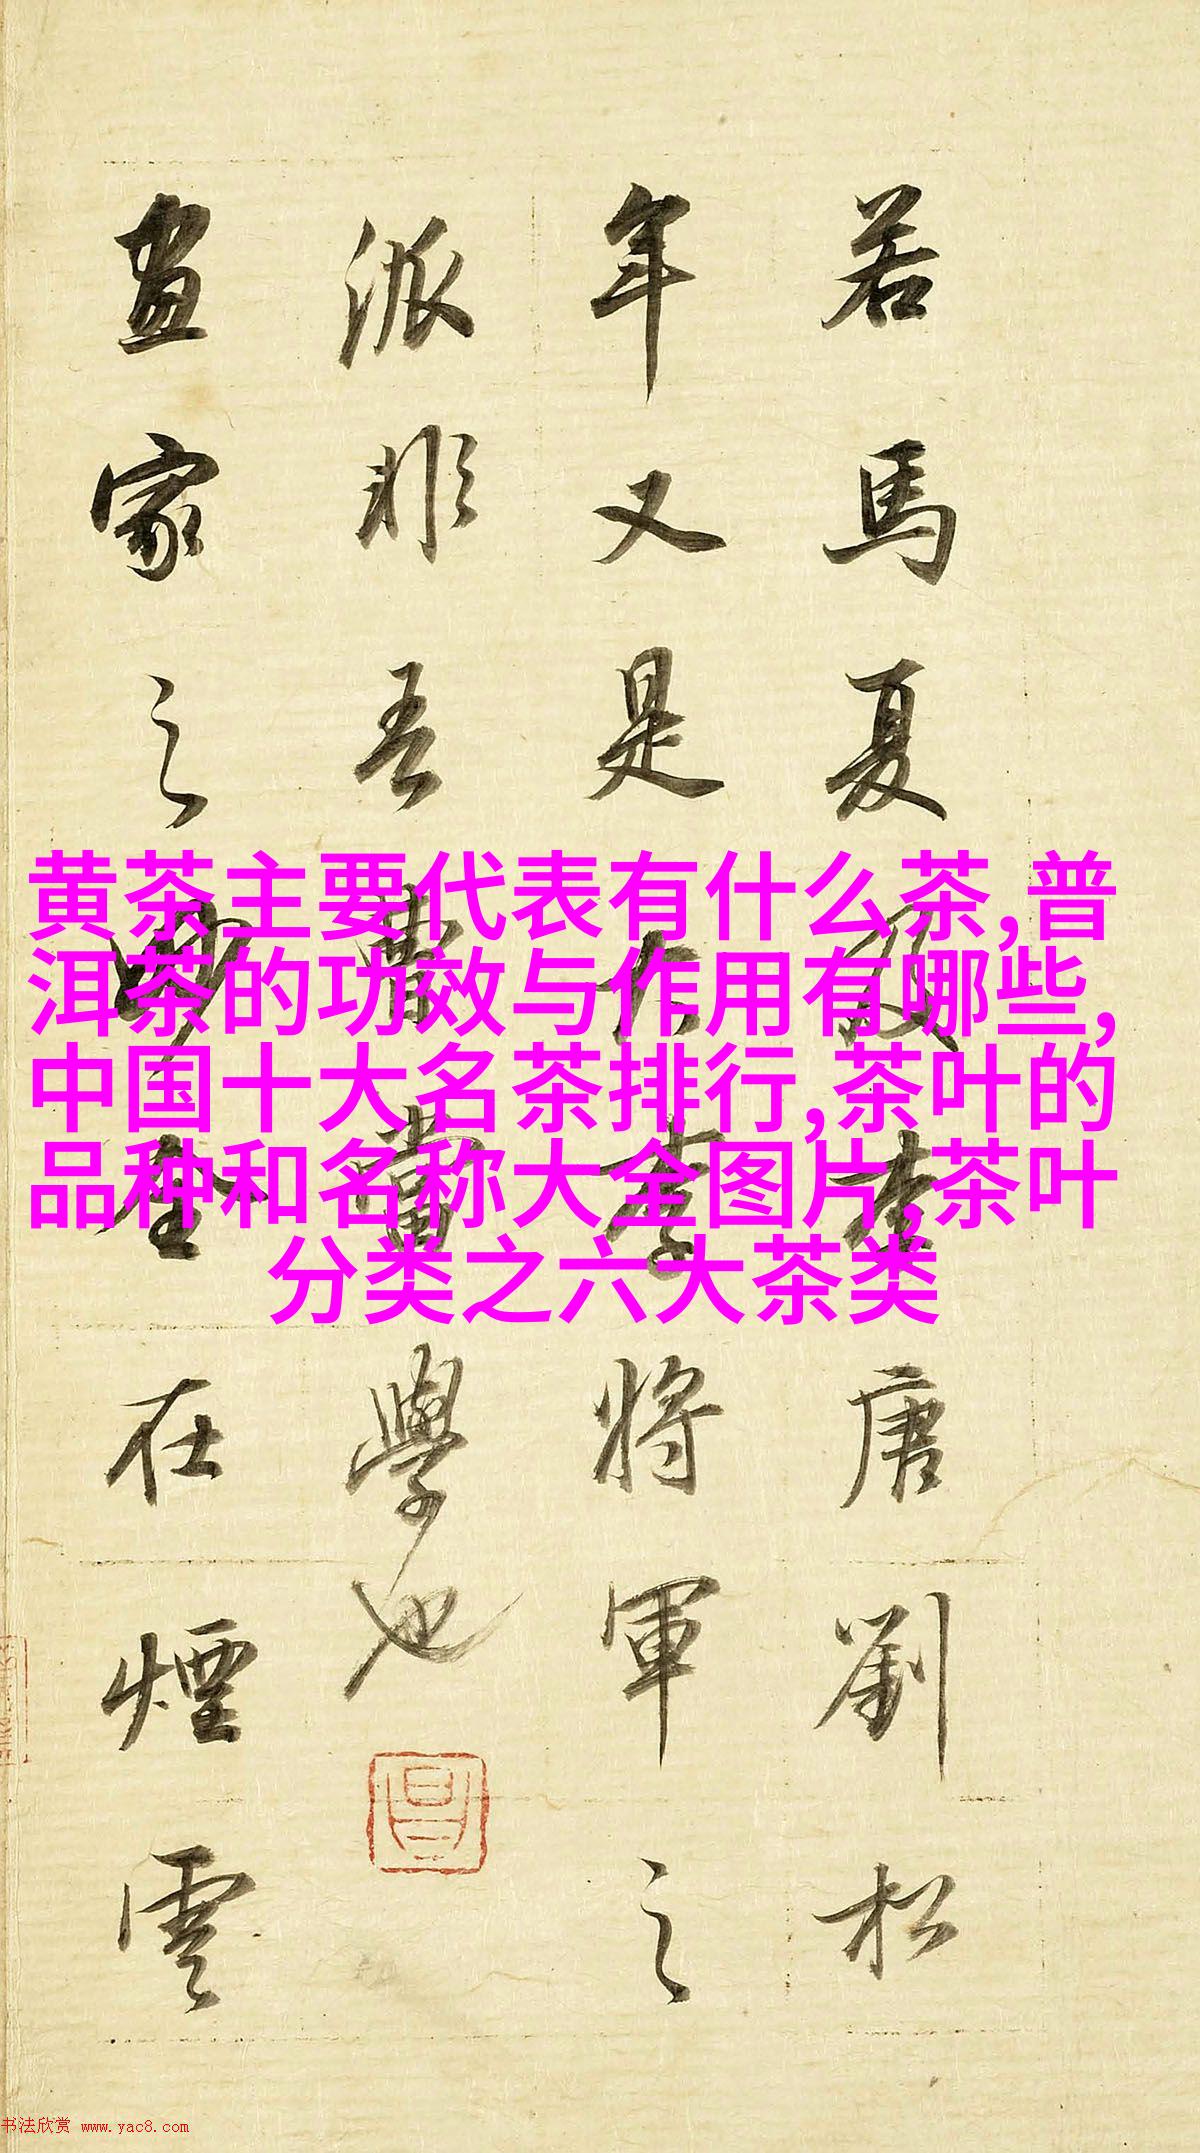 若馬夏及李唐劉松
年又是大李將軍之
派非吾曹當學也
畫家之妙全在煙雲
黄茶主要代表有什么茶,普
洱茶的功效与作用有哪些,
中国十大名茶排行,茶叶的
品种和名称大全图片,茶叶
分类之六大茶类
书法欣赏 www.yac8.com